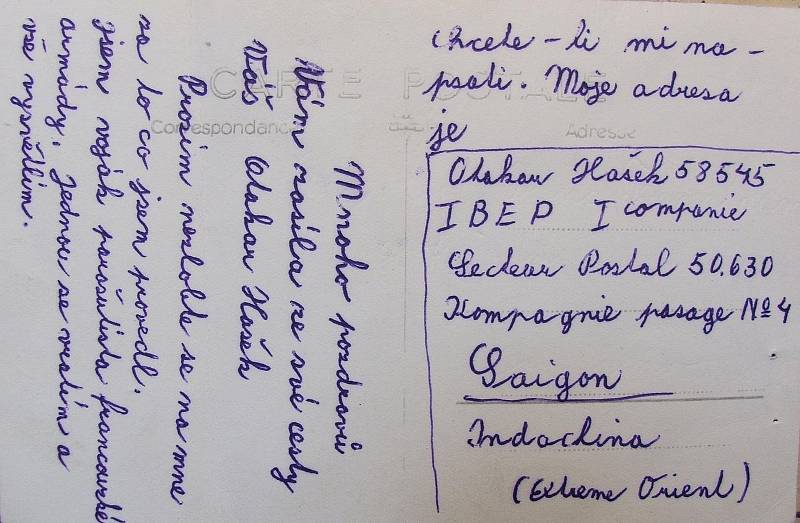 CARTE POSTALE
Correspondance
Adresse
Mnoho pozdravů
Vám zasílá ze své cesty
Váš Otakar Hašek
Prosím nezlobte se na mne
za to co jsem provedl.
Jsem voják parašutista francouzké
armády. Jednou se vrátím a
vše vysvětlím.
Chcete-li mi na-
psati. Moje adresa
je
Otakar Hašek 58545
I BEP I companie
Secteur Postal 50.630
Kompagnie pasage № 4
Saigon
Indochina
(Extreme Orient)